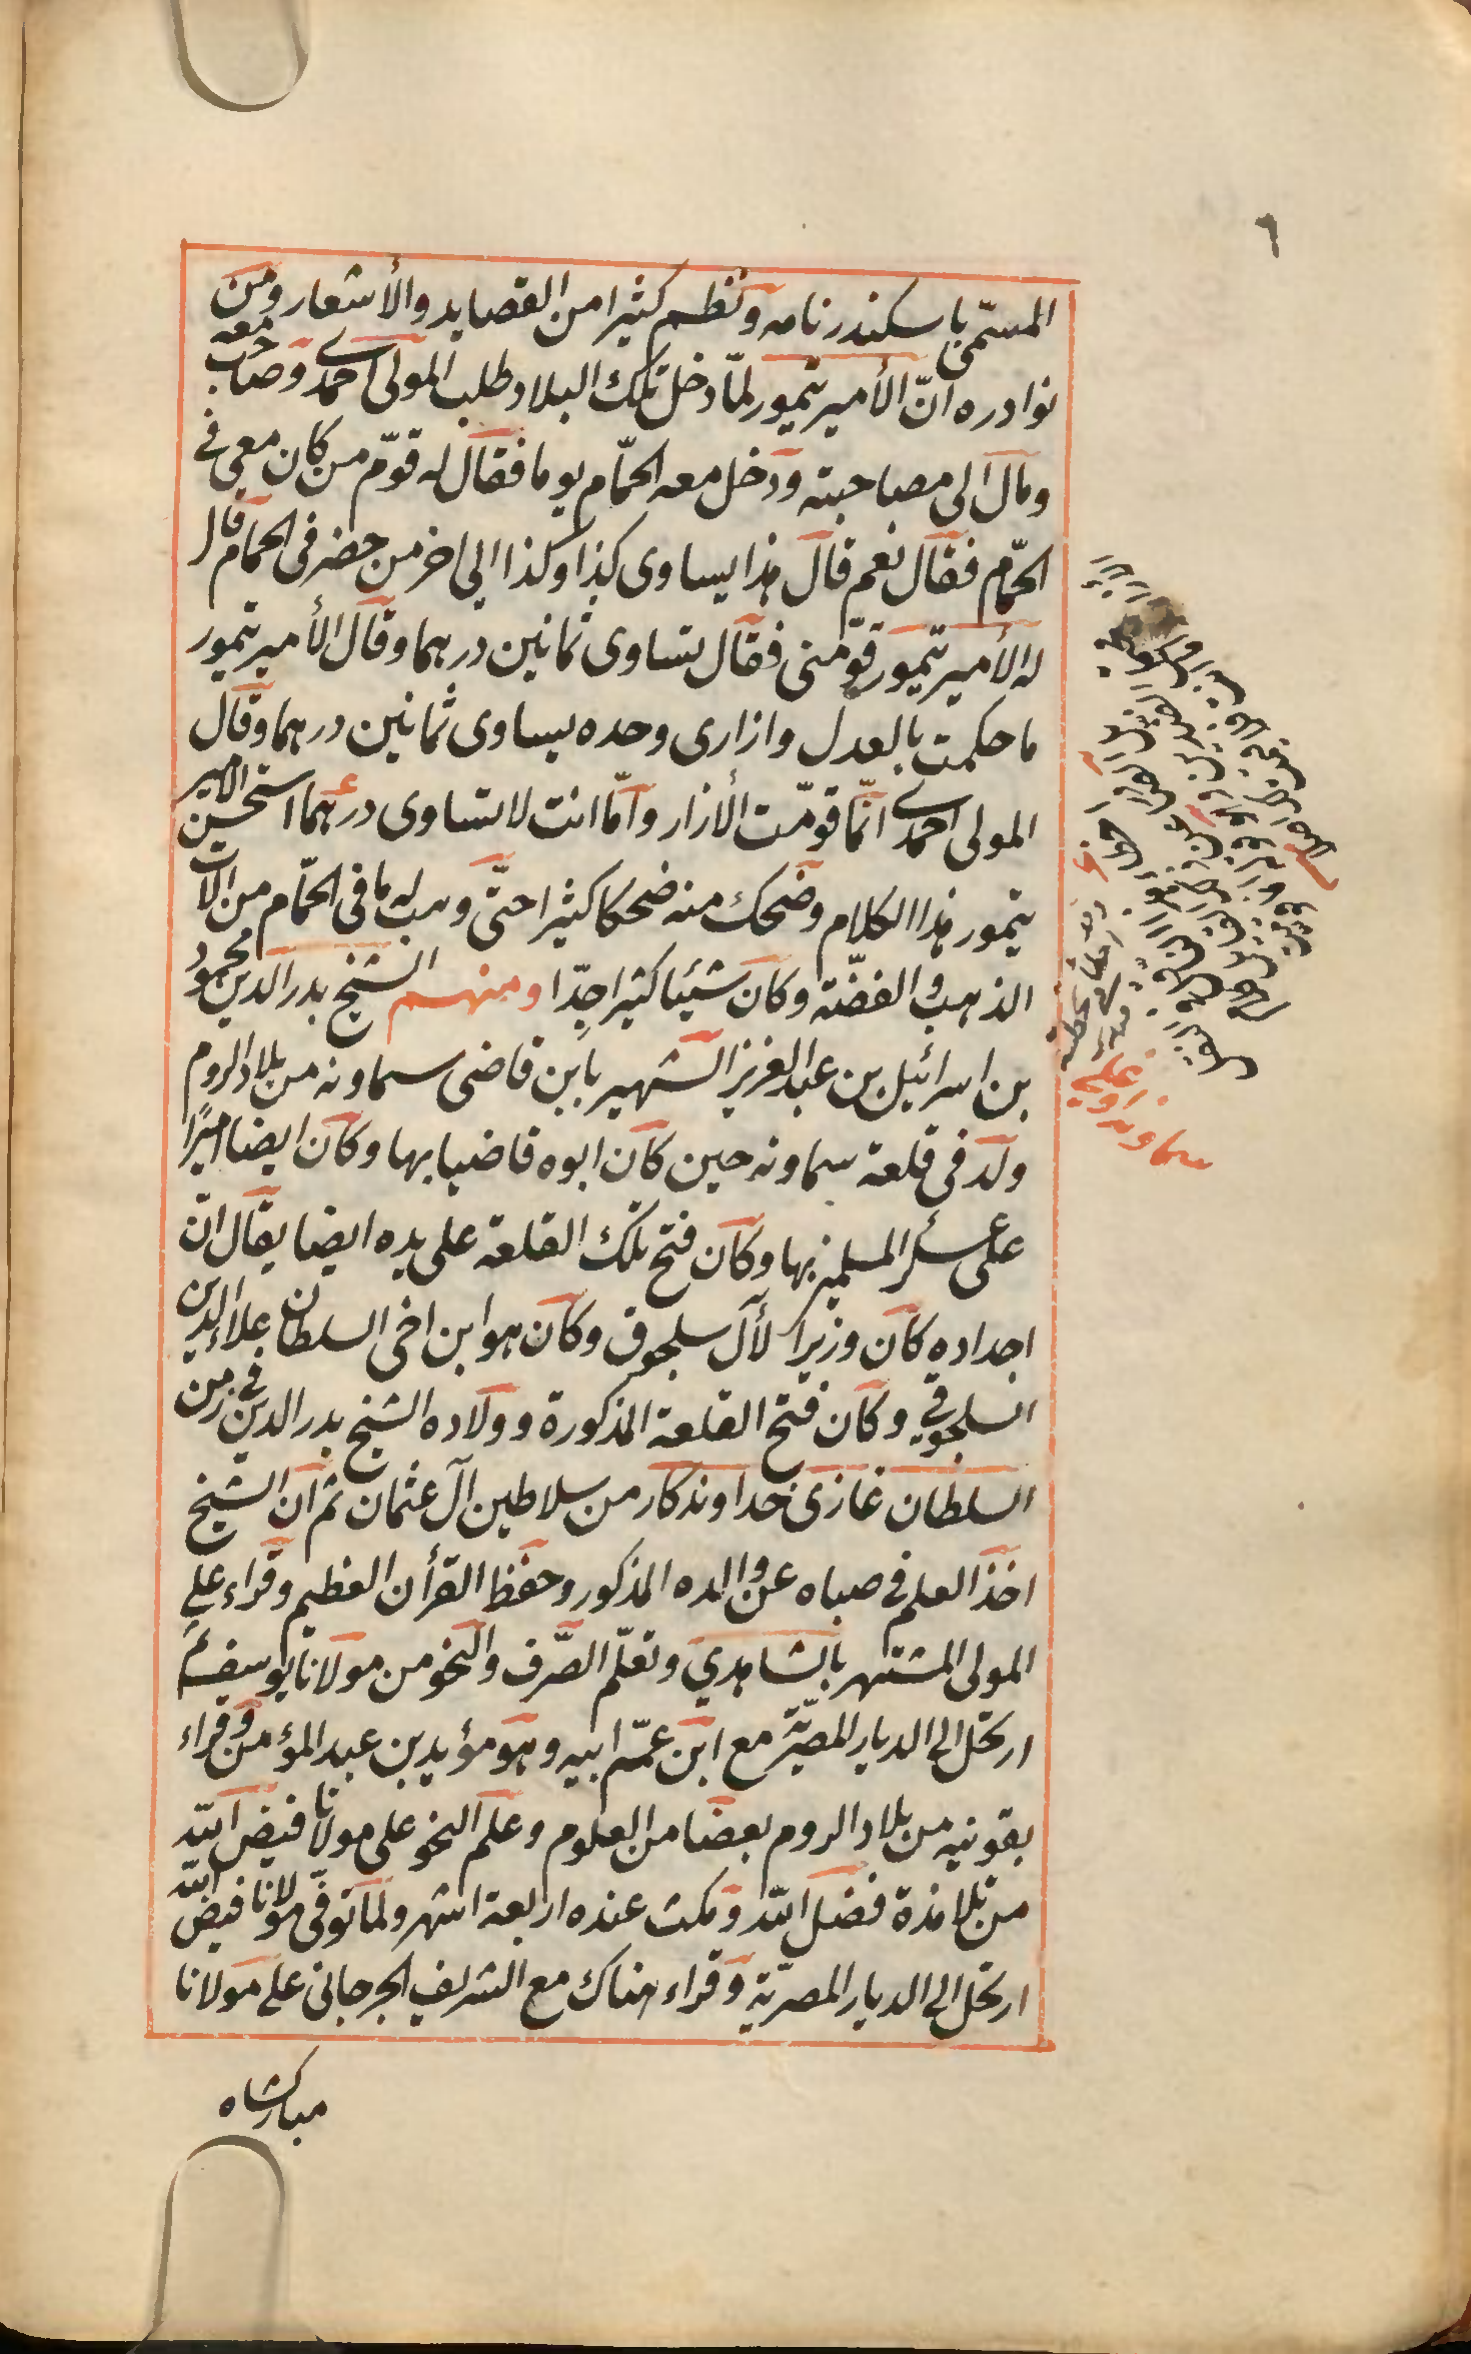 ٦
المسمّى باسكندرنامه ونظم كثيرا من القصايد والأشعار ومن
نوادره انّ الأمير تيمور لمّا دخل تلك البلاد طلب المولى احمدى وصاحب معه
ومال الى مصاحبته ودخل معه الحمّام يوما فقال له قوّم من كان معى فى
الحمّام فقال نعم قال هذا يساوى كذا وكذا الى اخر من حضر فى الحمام قال
له الأمير تيمور قوّمنى فقال تساوى ثمانين درهما وقال الأمير تيمور
ما حكمت بالعدل وازارى وحده يساوى ثمانين درهما وقال
المولى احمدى انّما قوّمت الأزار وامّا انت لا تساوى درهما استحسن الامير
تيمور هذا الكلام وضحك منه ضحكا كثيرا حتّى وهب له ما فى الحمّام من الات
الذهب والفضّة وكان شيئا كثيرا جدّا ومنهم الشيخ بدر الدين محمود
بن اسرائيل بن عبد العزيز الشهير بابن قاضى سماونه من بلاد الروم
ولد فى قلعة سماونه حين كان ابوه قاضيا بها وكان ايضا اميرًا
على عسكر المسلمين بها وكان فتح تلك القلعة على يده ايضا يقال انّ
اجداده كان وزيرا لآل سلجوق وكان هو ابن اخى السلطان علاء الدين
السلجوقي وكان فتح القلعة المذكورة وولاده الشيخ بدر الدين فى زمن
السلطان غازى خداوندكار من سلاطين آل عثمان ثم ان الشيخ
اخذ العلم فى صباه عن والده المذكور وحفظ القرأن العظيم وقراء على
المولى المشتهر بالشاهدي وتعلّم الصّرف والنحو من مولانا يوسف ثم
ارتحل الى الديار المصريّة مع ابن عمّ ابيه وهو مؤيد بن عبد المؤمن وقراء
بقونيه من بلاد الروم بعضا من العلوم وعلم النحو على مولانا فيض الله
من تلامذة فضل الله ومكث عنده اربعة اشهر ولما توفّى مولانا فيض الله
ارتحل الى الديار المصريّة وقراء هناك مع الشريف الجرجانى على مولانا
مباركشاه